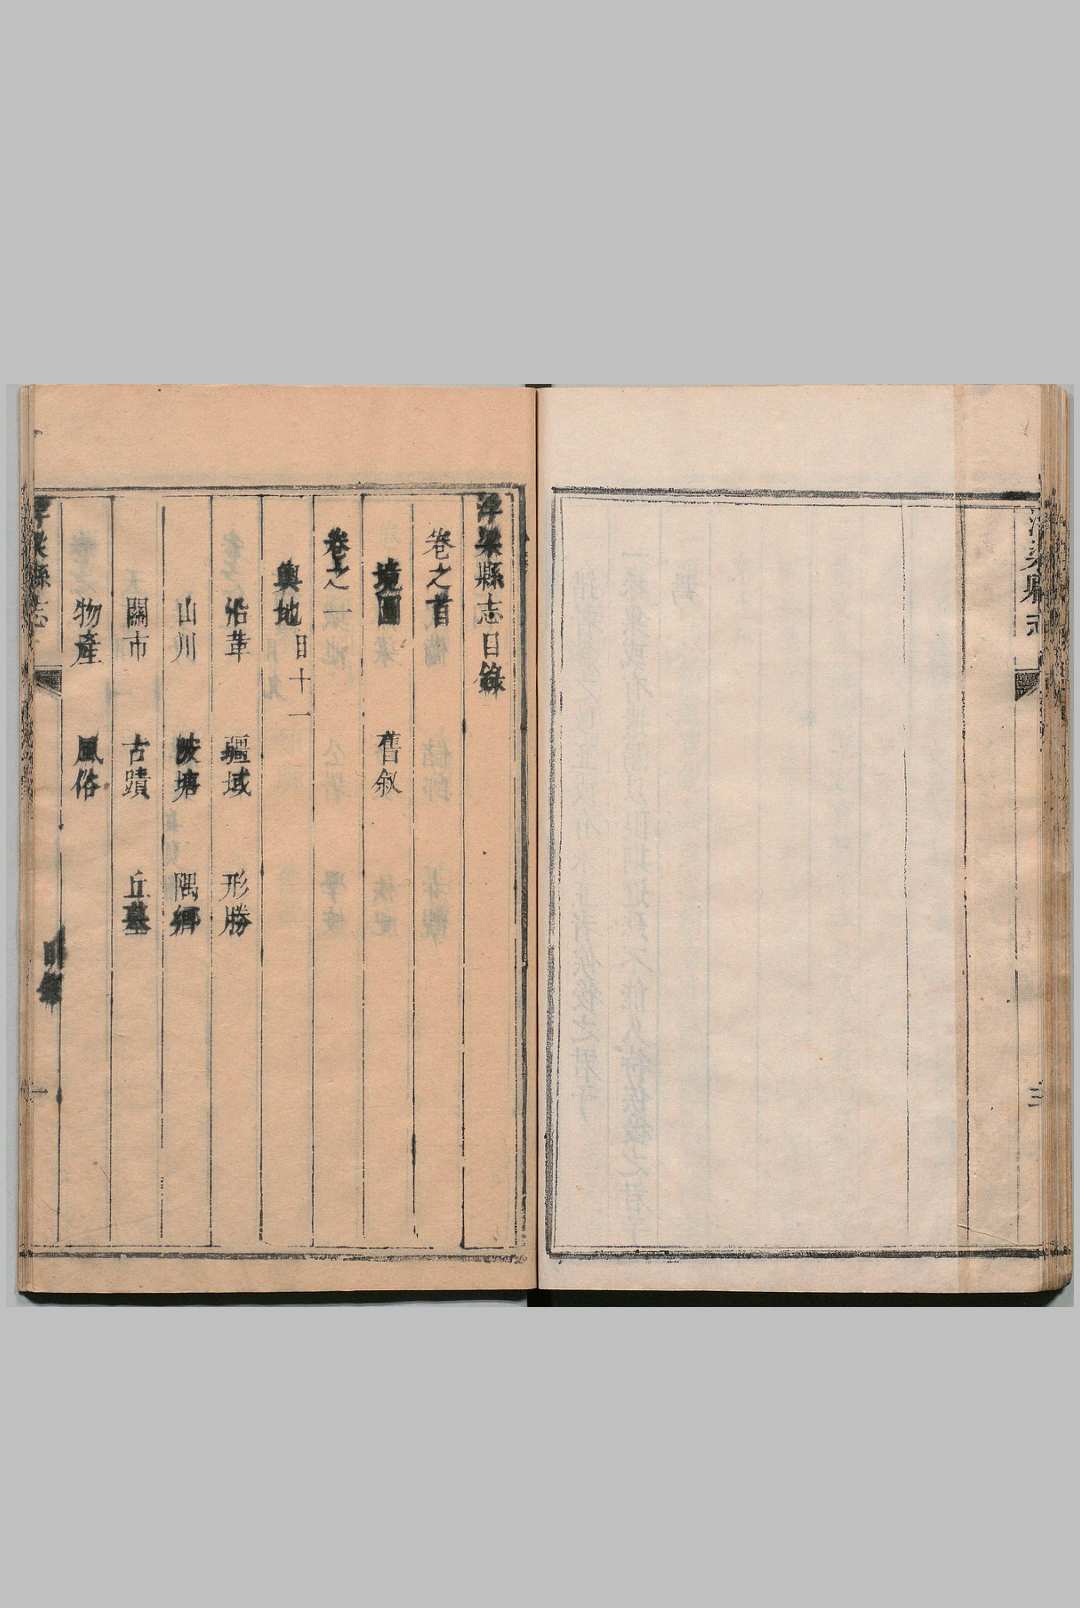 志
三
淳梁縣志目錄
卷之首
境圖 舊敘
卷之一
輿地 目十一
沿革 疆域 形勝
山川 陂塘 隅鄉
關市 古蹟 丘墓
物產 風俗
梁縣志
目錄
一